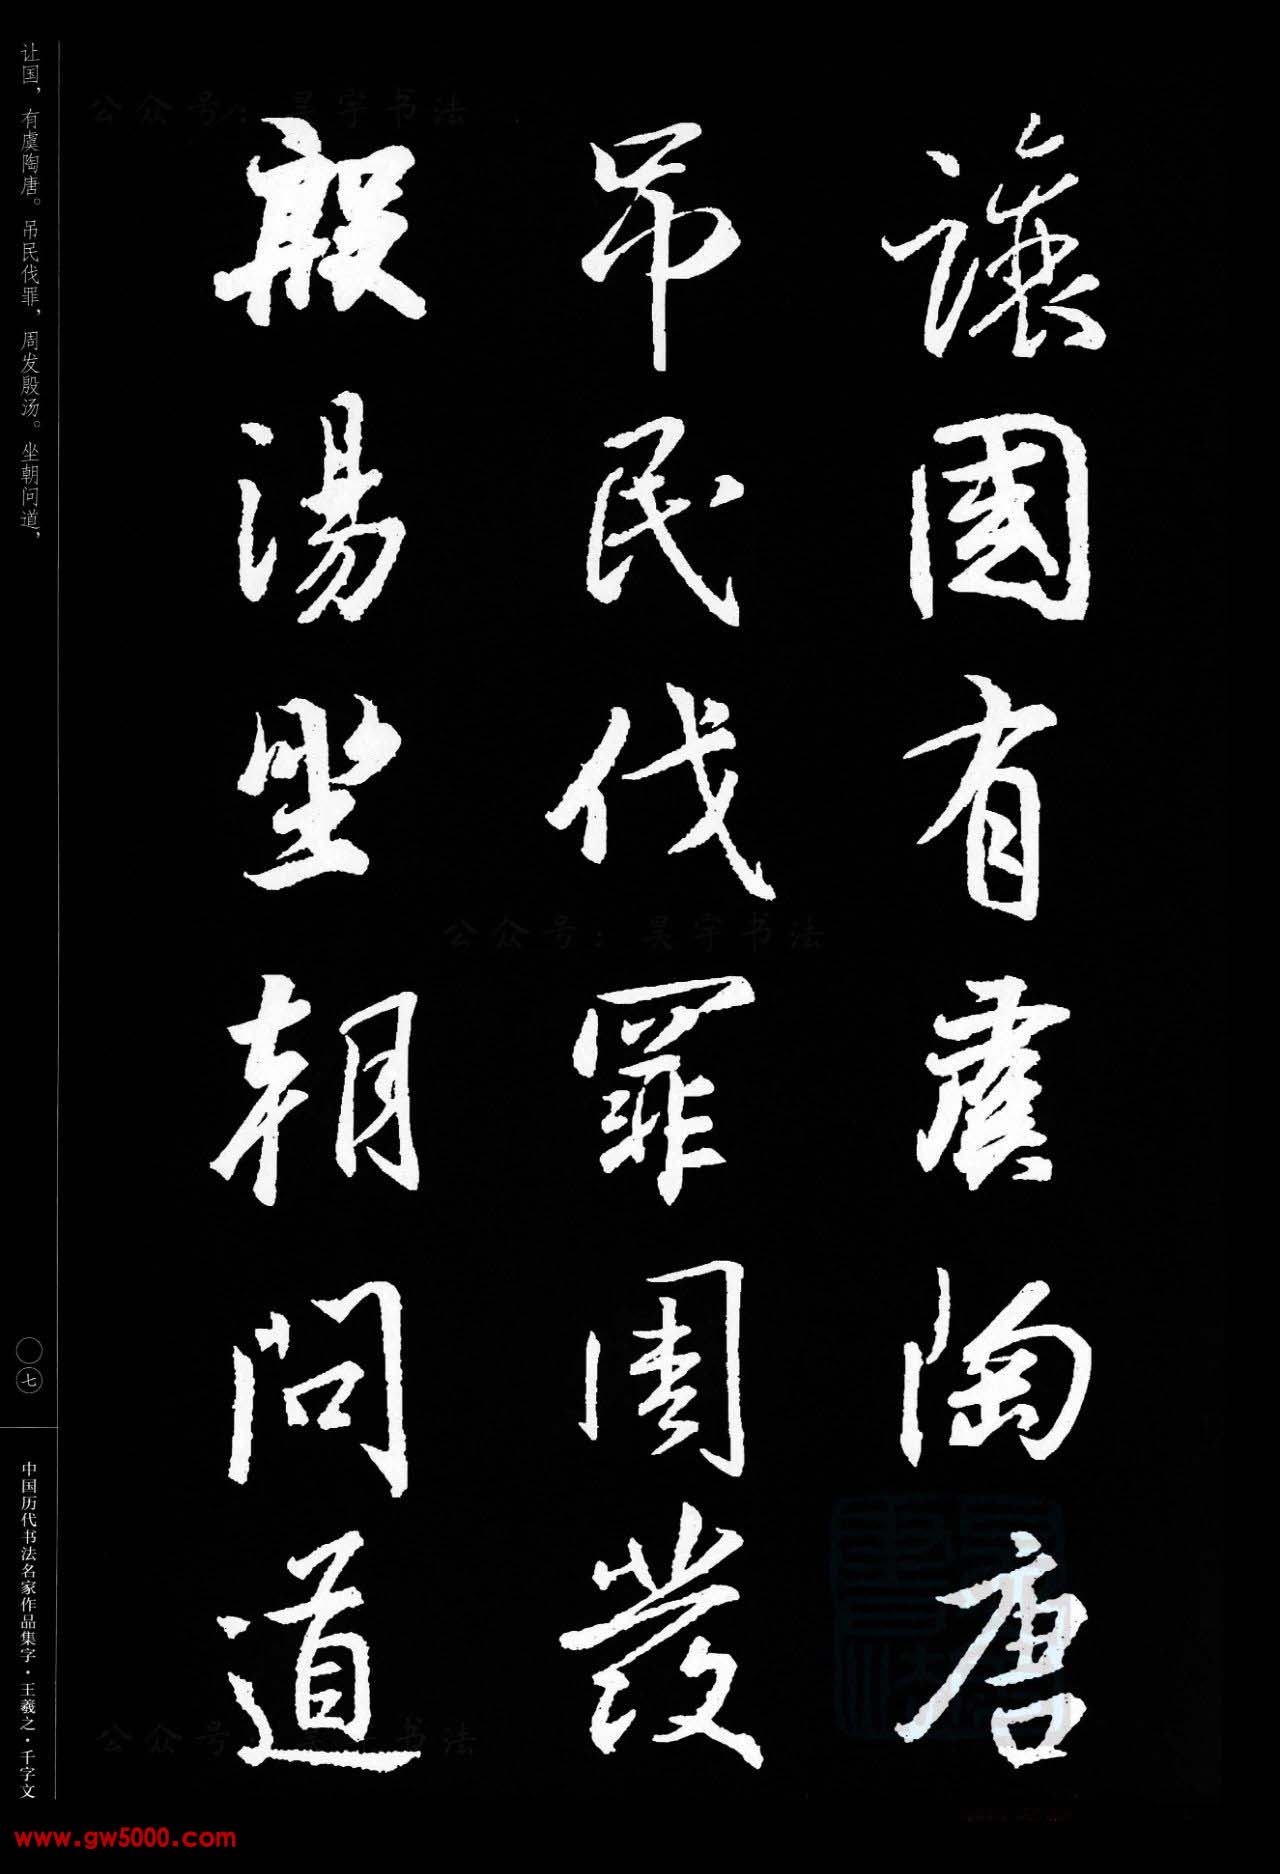 讓國有虞陶唐
吊民伐罪周發
殷湯坐朝問道
让国，有虞陶唐。吊民伐罪，周发殷汤。坐朝问道，
〇七
中国历代书法名家作品集字·王羲之·千字文
公众号：昊宇书法
公众号：昊宇书法
公众号：昊宇书法
www.gw5000.com